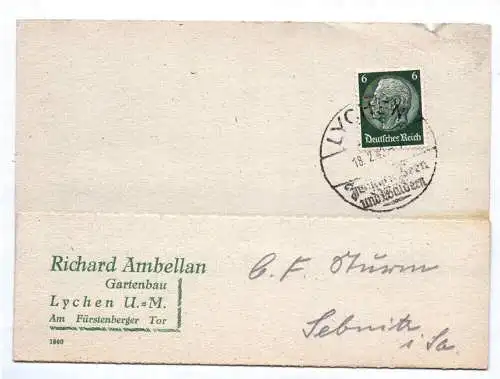 6 6
Deutsches Reich
LYCHEN
18.2.4
Seen
und Wäldern
Richard Ambellan
Gartenbau
Lychen U.=M.
Am Fürstenberger Tor
1860
C. F. Sturm
Sebnitz
i Sa.